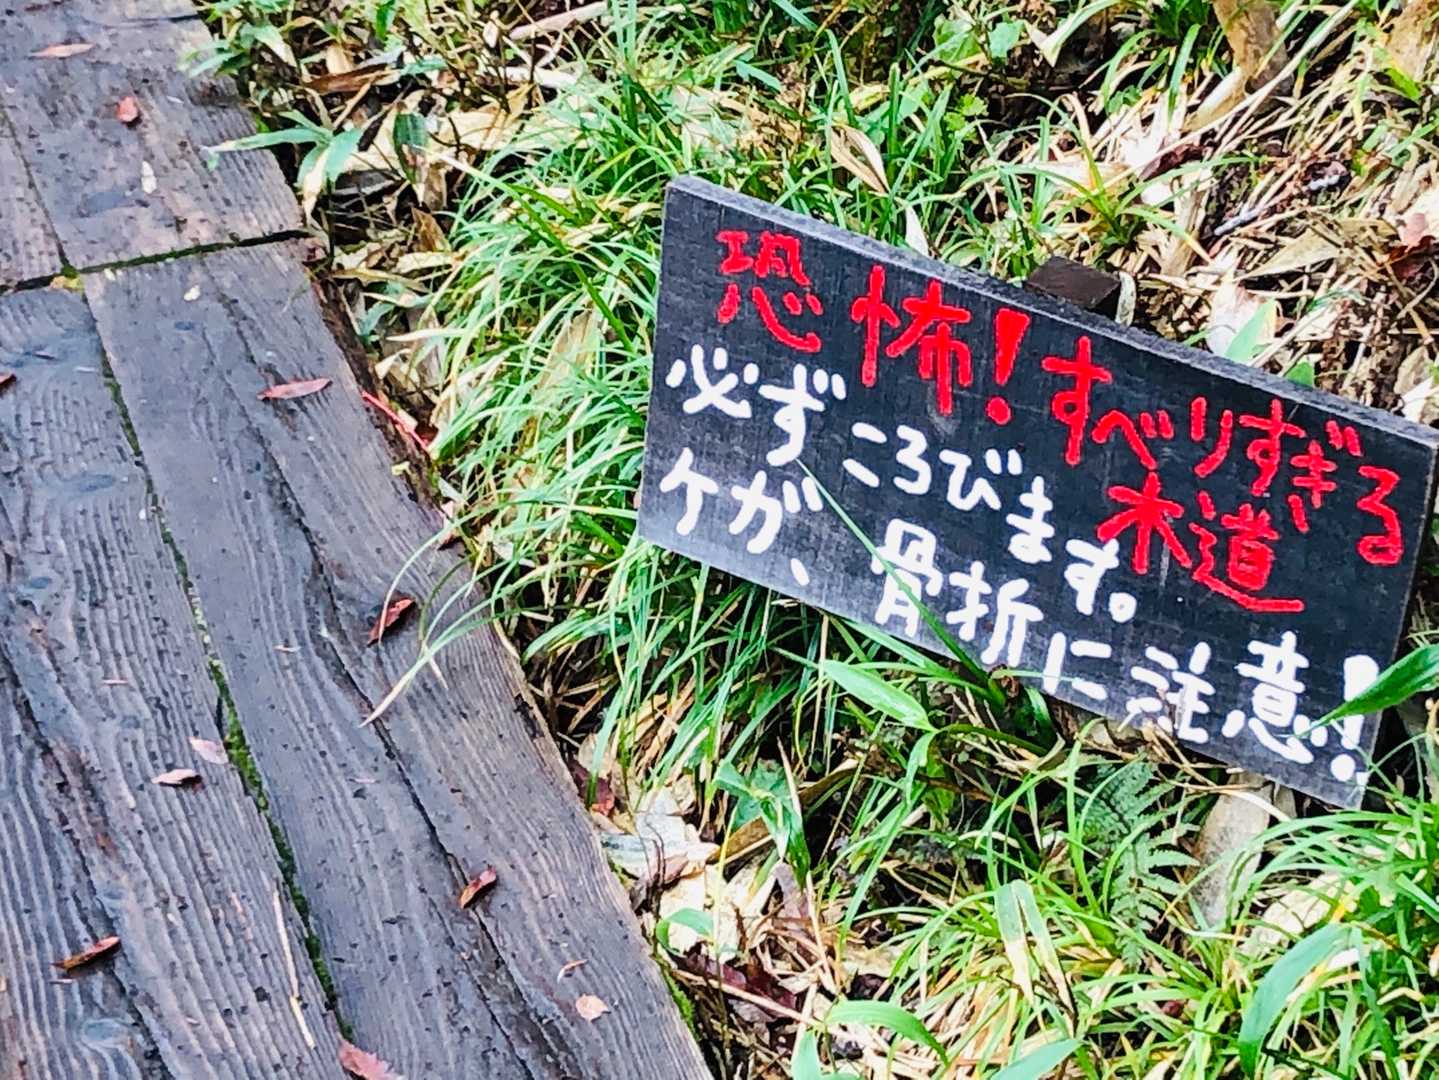 恐怖！すべりすぎる
木道
必ずころびます。
ケガ、骨折に注意！